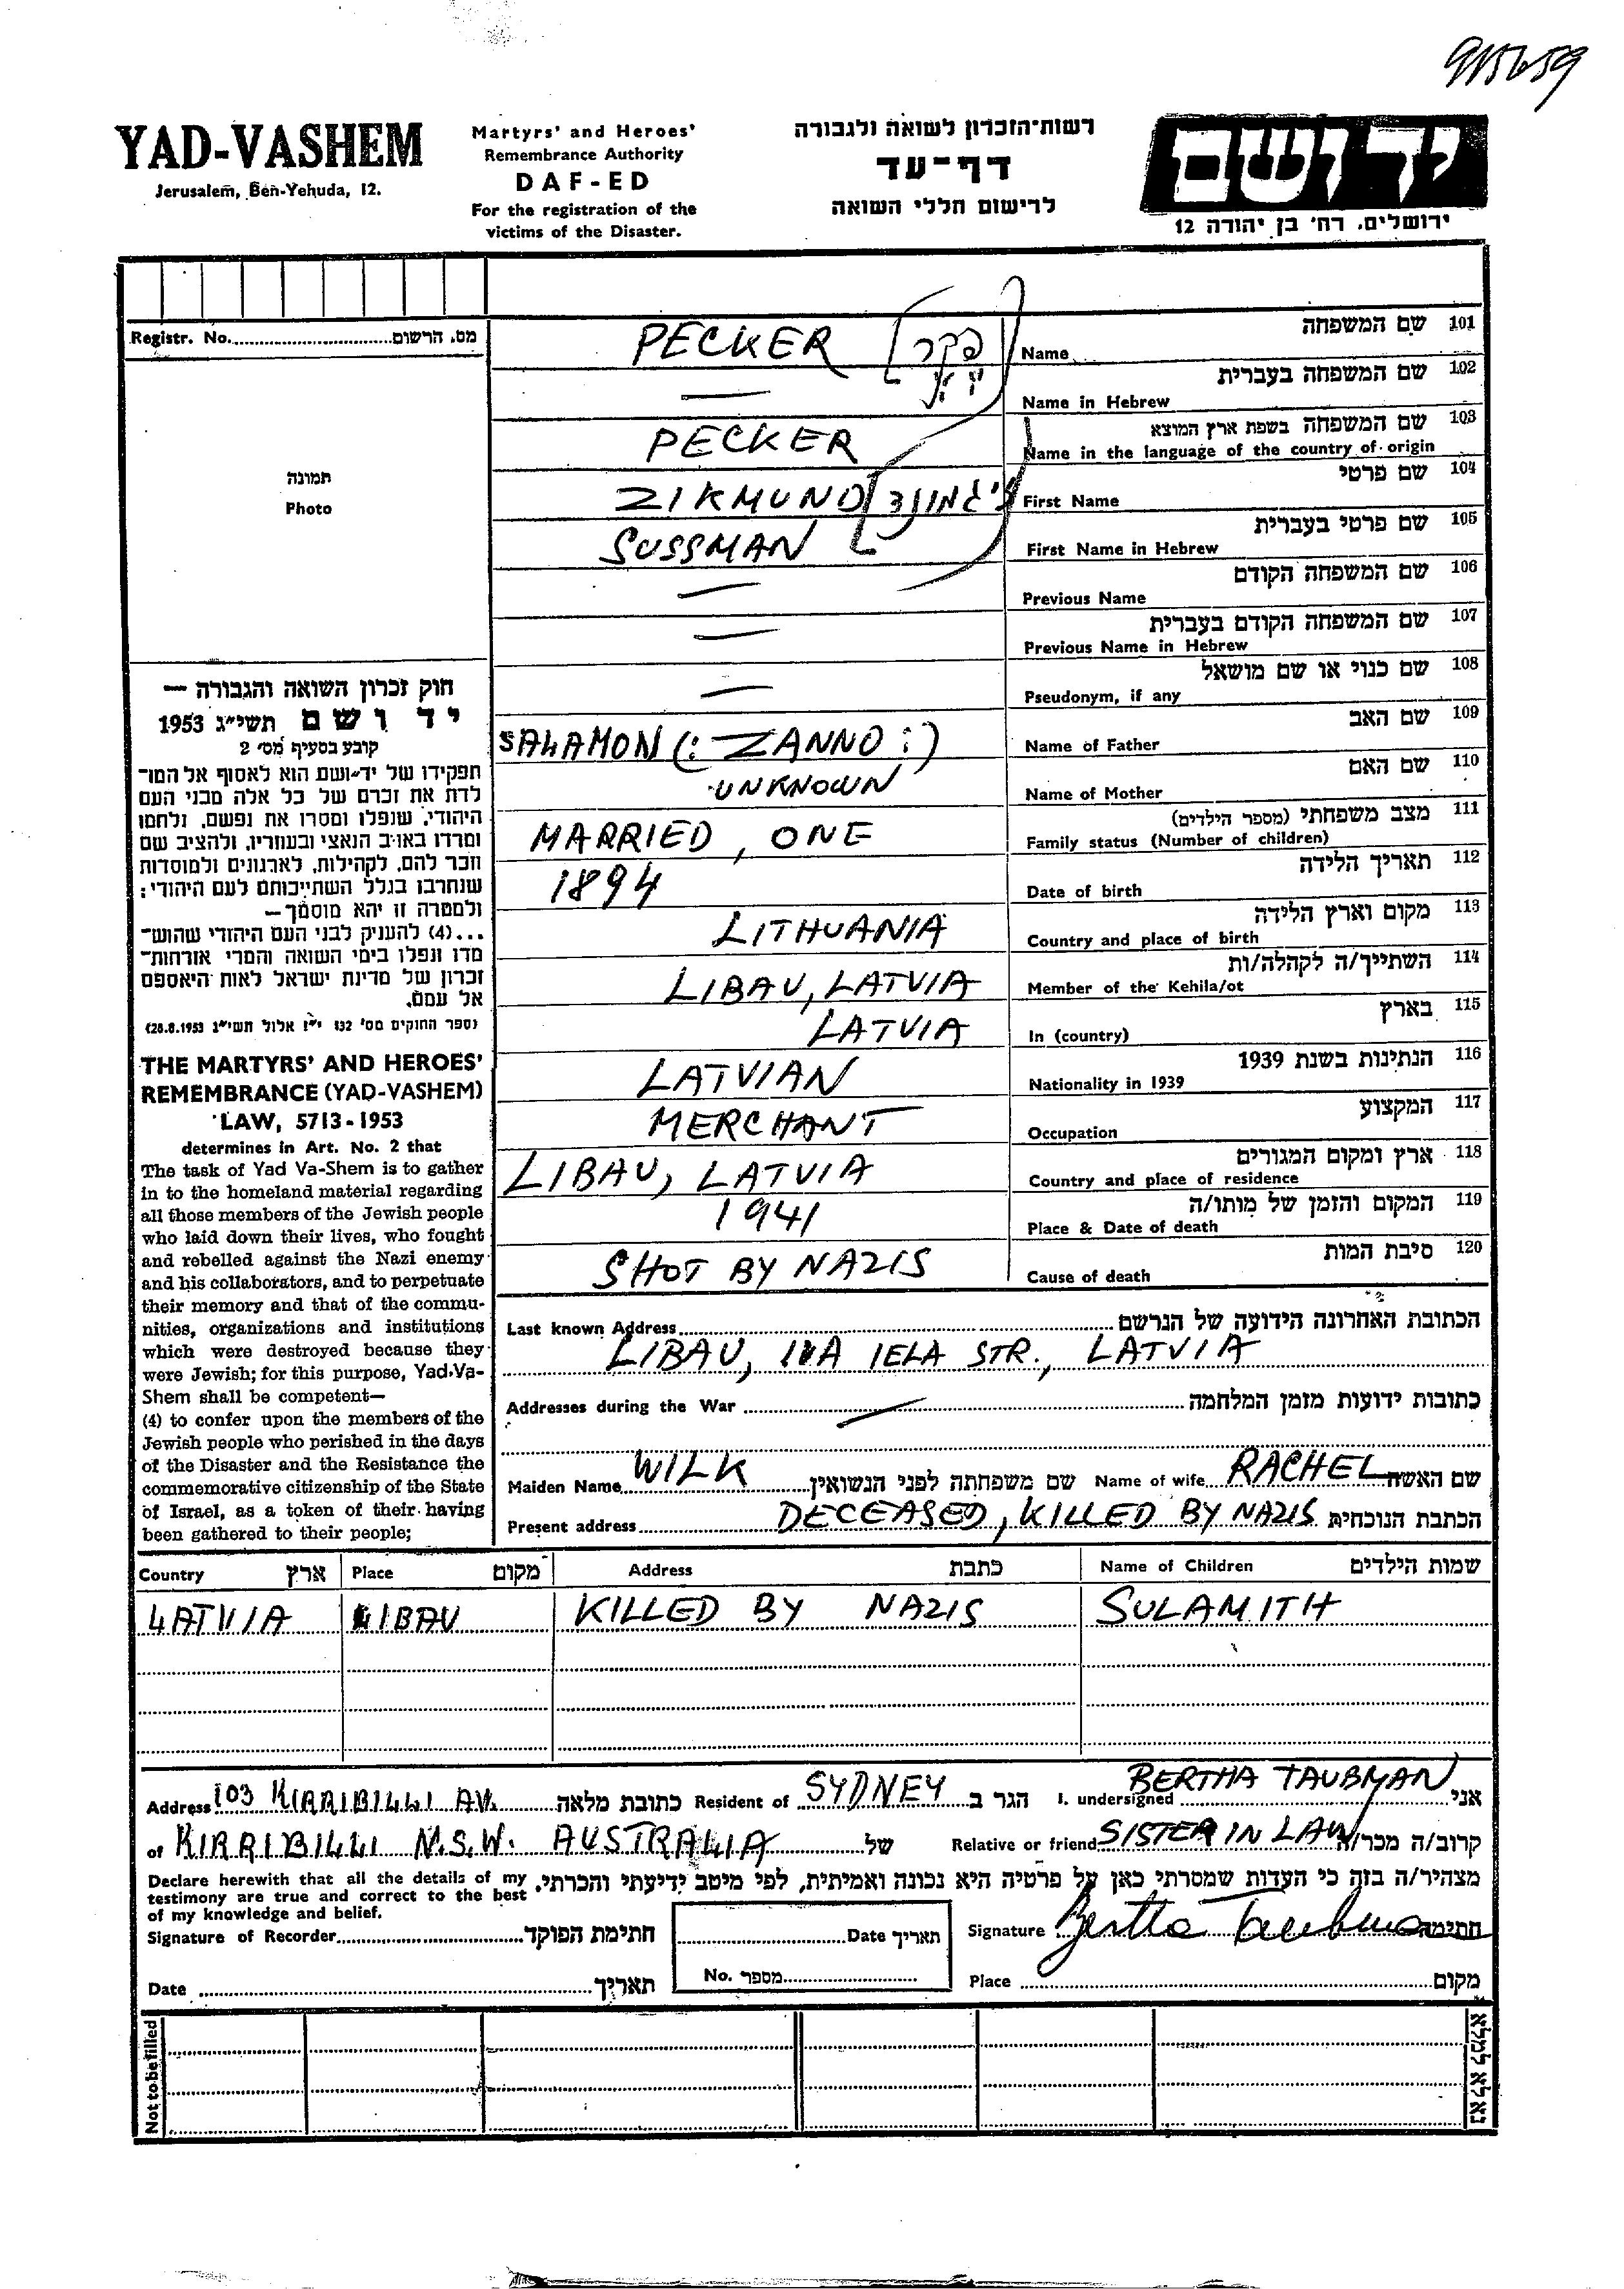 915659
YAD-VASHEM
Jerusalem, Ben-Yehuda, 12.
Martyrs' and Heroes'
Remembrance Authority
DAF-ED
For the registration of the
victims of the Disaster.
רשות־הזכרון לשואה ולגבורה
דף־עד
לרישום חללי השואה
יד ושם
ירושלים, רח' בן יהודה 12
Registr. No. מס. הרשום
תמונה
Photo
PECKER פקר Name שם המשפחה 101
— Name in Hebrew שם המשפחה בעברית 102
PECKER Name in the language of the country of origin שם המשפחה בשפת ארץ המוצא 103
ZIKMUND זיגמונד First Name שם פרטי 104
SUSSMAN First Name in Hebrew שם פרטי בעברית 105
— Previous Name שם המשפחה הקודם 106
— Previous Name in Hebrew שם המשפחה הקודם בעברית 107
— Pseudonym, if any שם כנוי או שם מושאל 108
SALAMON (: ZANNO :) Name of Father שם האב 109
UNKNOWN Name of Mother שם האם 110
MARRIED, ONE Family status (Number of children) מצב משפחתי (מספר הילדים) 111
1894 Date of birth תאריך הלידה 112
LITHUANIA Country and place of birth מקום וארץ הלידה 113
LIBAU, LATVIA Member of the Kehila/ot השתייך/ה לקהלה/ות 114
LATVIA In (country) בארץ 115
LATVIAN Nationality in 1939 הנתינות בשנת 1939 116
MERCHANT Occupation המקצוע 117
LIBAU, LATVIA Country and place of residence ארץ ומקום המגורים 118
1941 Place & Date of death המקום והזמן של מותו/ה 119
SHOT BY NAZIS Cause of death סיבת המות 120
חוק זכרון השואה והגבורה —
יד ושם תשי״ג 1953
קובע בסעיף מס' 2
תפקידו של יד־ושם הוא לאסוף אל המו־
לדת את זכרם של כל אלה מבני העם
היהודי, שנפלו ומסרו את נפשם, נלחמו
ומרדו באויב הנאצי ובעוזריו, ולהציב שם
וזכר להם, לקהילות, לארגונים ולמוסדות
שנחרבו בגלל השתייכותם לעם היהודי;
ולמטרה זו יהא מוסמך—
...(4) להעניק לבני העם היהודי שהוש־
מדו ונפלו בימי השואה והמרי אזרחות־
זכרון של מדינת ישראל לאות היאספם
אל עמם.
(ספר החוקים מס' 132 י״ז אלול תשי״ג 28.8.1953)
THE MARTYRS' AND HEROES'
REMEMBRANCE (YAD-VASHEM)
LAW, 5713-1953
determines in Art. No. 2 that
The task of Yad Va-Shem is to gather
in to the homeland material regarding
all those members of the Jewish people
who laid down their lives, who fought
and rebelled against the Nazi enemy
and his collaborators, and to perpetuate
their memory and that of the commu-
nities, organizations and institutions
which were destroyed because they
were Jewish; for this purpose, Yad-Va-
Shem shall be competent—
(4) to confer upon the members of the
Jewish people who perished in the days
of the Disaster and the Resistance the
commemorative citizenship of the State
of Israel, as a token of their having
been gathered to their people;
Last known Address הכתובת האחרונה הידועה של הנרשם
LIBAU, IELA STR., LATVIA
Addresses during the War — כתובות ידועות מזמן המלחמה
Maiden Name WILK שם משפחתה לפני הנשואין Name of wife RACHEL שם האשה
Present address DECEASED, KILLED BY NAZIS הכתבת הנוכחית
Country ארץ Place מקום Address כתבת Name of Children שמות הילדים
LATVIA LIBAU KILLED BY NAZIS SULAMITH
Address 103 KIRRIBILLI AV. כתובת מלאה Resident of SYDNEY הגר ב I. undersigned BERTHA TAUBMAN אני
of KIRRIBILLI N.S.W. AUSTRALIA של Relative or friend SISTER IN LAW קרוב/ה מכר/ה
Declare herewith that all the details of my
testimony are true and correct to the best
of my knowledge and belief.
מצהיר/ה בזה כי העדות שמסרתי כאן על פרטיה היא נכונה ואמיתית, לפי מיטב ידיעתי והכרתי.
Signature of Recorder חתימת הפוקד Date תאריך Signature Bertha Taubman חתימה
Date תאריך No. מספר Place מקום
Not to be filled נא לא למלא